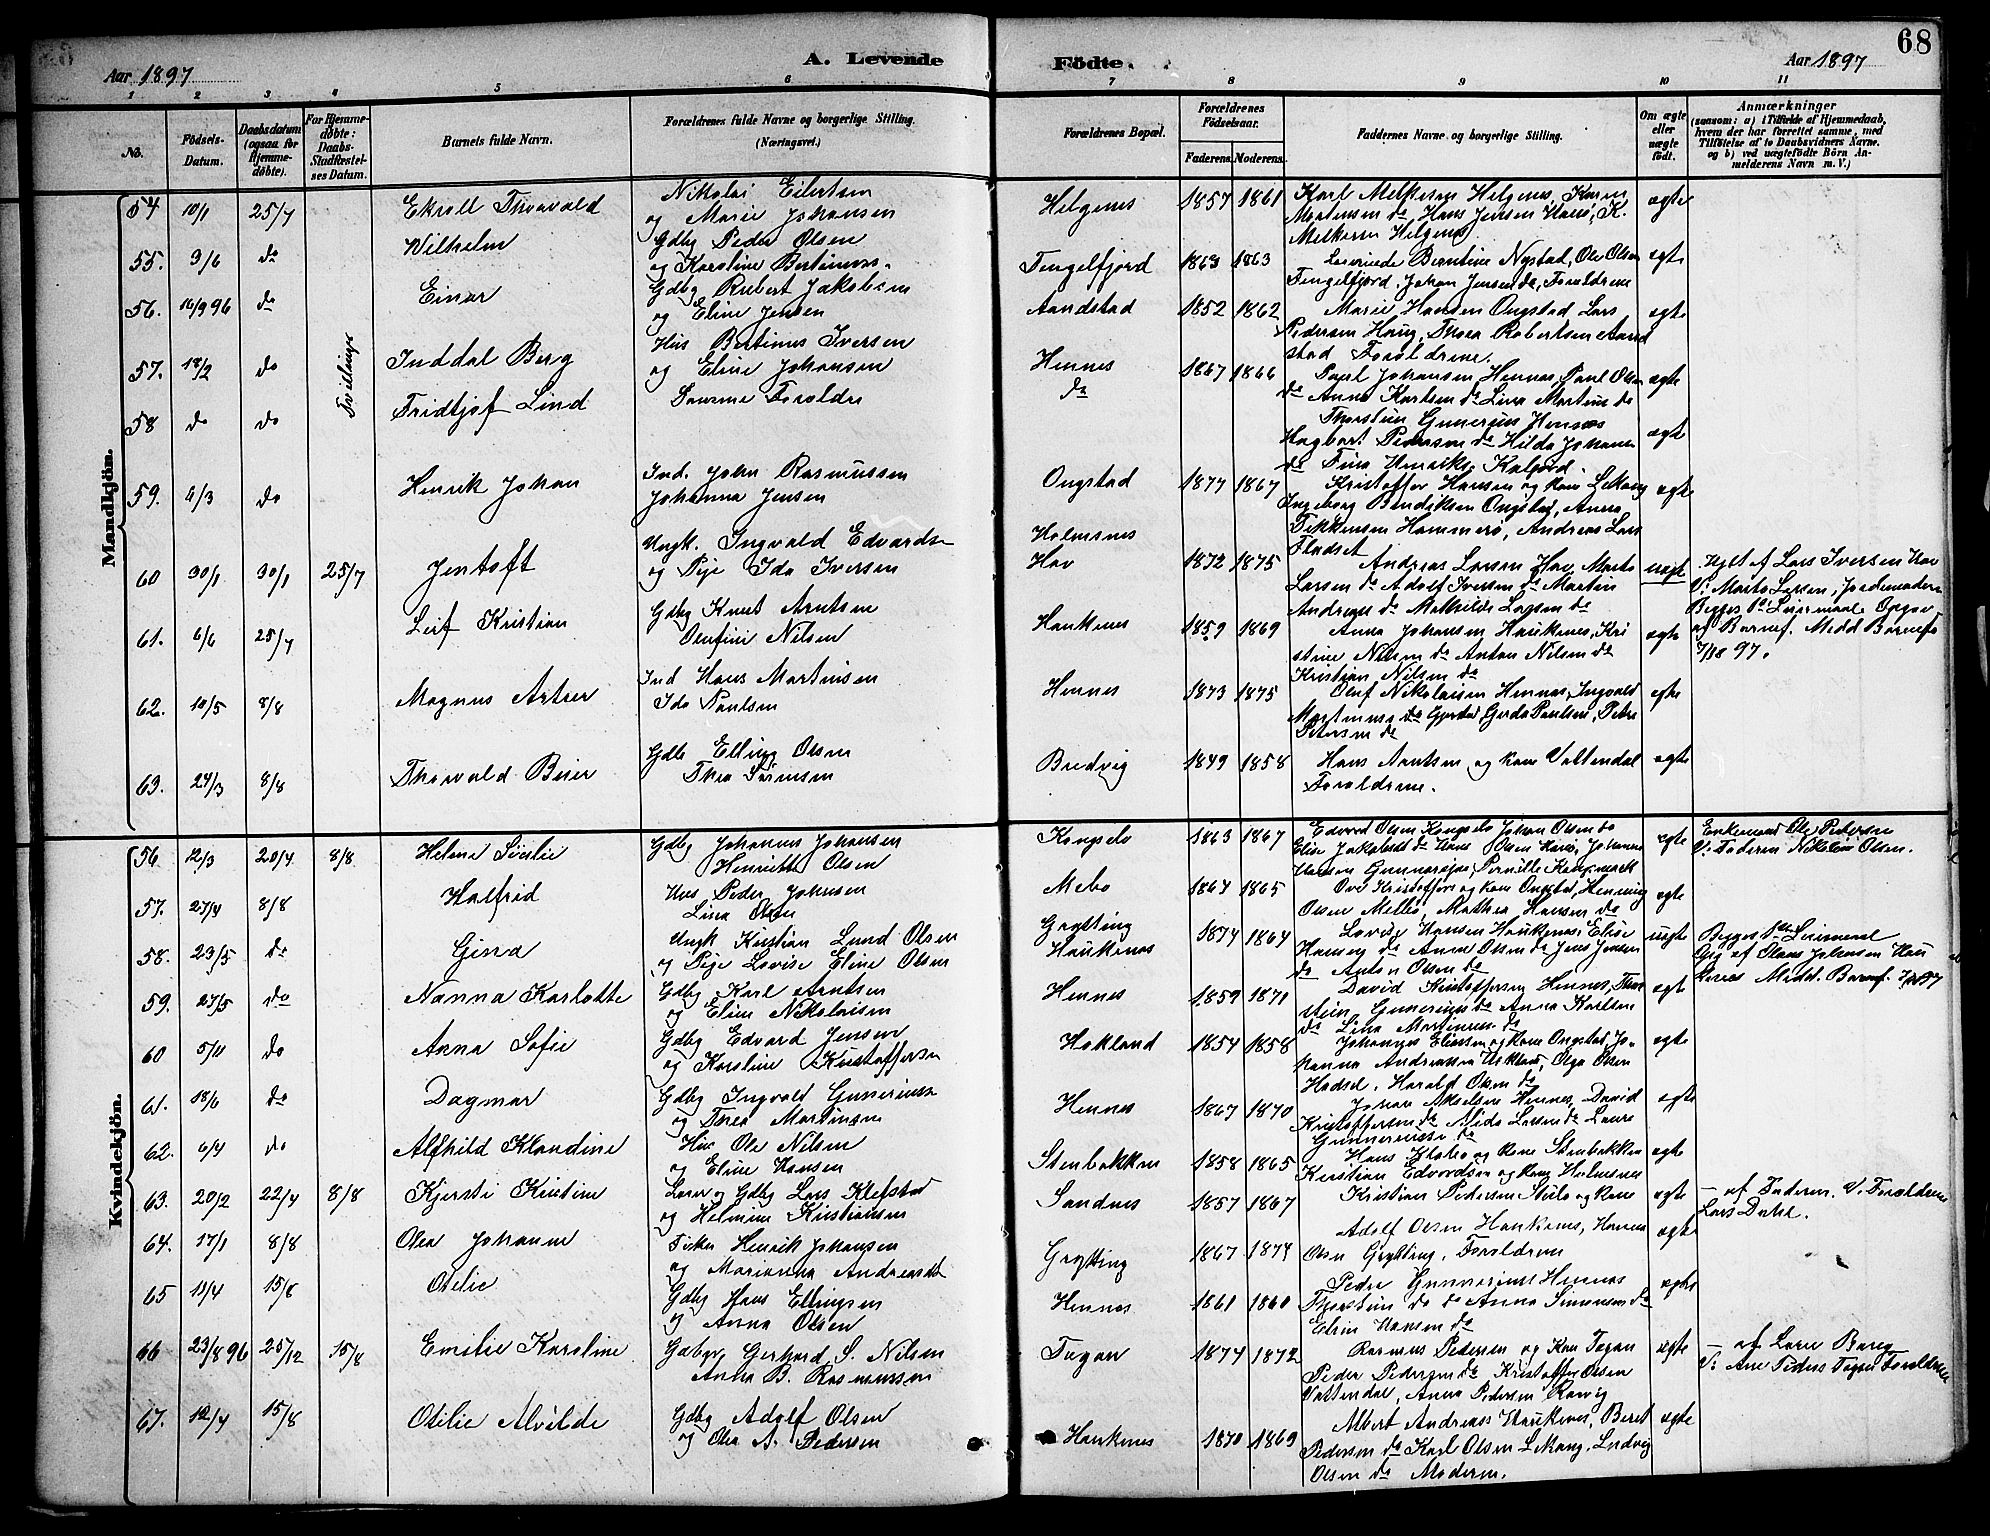 68
Aar 1897
A. Levende
Födte.
Aar 1897
1 2 3 4 5 6 7 8 9 10 11
No.
Födsels-Datum.
Daabsdatum (ogsaa for Hjemme-döbte).
For Hjemme-döbte: Daabs-Stadfæstel-ses Datum.
Barnets fulde Navn.
Forældrenes fulde Navne og borgerlige Stilling.
(Næringsvei.)
Forældrenes Bopæl.
Forældrenes Födselsaar.
Faderens. Moderens.
Faddernes Navne og borgerlige Stilling.
Om ægte eller uægte födt.
Anmærkninger
(saasom: a) i Tilfælde af Hjemmedaab,
hvem der har forrettet samme, med
Tilföielse af to Daabsvidners Navne.
og b) ved uægtefödte Börn An-
melderens Navn m. V.)
Mandkjön.
54 10/1 25/7 Ekroll Thorvald
Nikolai Eilertsen
og Marie Johansen
Helgenes 1857 1861
Karl Melkersen Helgenes, Karen
Mortensen do Hans Jensen Haas, K.
Melkersen Helgenes
ægte
55. 9/6 do Wilhelm
Gdbg Peder Olsen
og Karoline Bertinuss.
Tengelfjord 1863 1863
Berntine Nystad, Ole Olsen
Tengelfjord, Johan Jensen do, Forældrene
ægte
56. 16/9 96 do Einar
Gdbg Robert Jakobsen
og Eline Jensen
Aandstad 1852 1862
Marie Hansen Ongstad Lars
Pedersen Haug, Thora Robertsen Aand
stad Forældrene.
ægte
Tvillinger
57. 18/2 do Inddal Berg
Hus Bertinus Iversen
og Eline Johansen
Hennes 1867 1866
Paul Johansen Hennes, Paul Olsen
do Anna Karlsen do Lina Martinus do
ægte
58 do do Fridtjof Lind
Samme Foreldre
do
Thorstein Gunnerius Hennes
Hagbart Pedersen do Hilda Johansen
do Tina Henriks. Kaljord.
ægte
59. 6/3 do Henrik Johan
Ind. John Rasmussen
Johanna Jensen
Ongstad 1877 1867
Kristoffer Hansen og kone Lekang
Ingeborg Bendiksen Ongstad, Anna
Fikkensen Hammerø, Andreas Lars
Fladset
ægte
60 30/1 30/1 25/7 Jentoft
Ungk. Ingvald Edvardsen
og Pige Ida Iversen
Holmsnes
Hav 1872 1875
Andreas Larsen Hav, Marta
Larsen do Adolf Iversen do Martin
Andreas do Mathilde Larsen do
uægte
af Lars Iversen Hav
V: Marta Larsen, Jordemoderen
Begges 1ste Leiermaal Opgav
og Barnef. Medd Barnefo
7/18 97.
61. 6/6 25/7 Leif Kristian
Gdbg Knut Arntsen
Olufine Nilsen
Haukenes 1859 1869
Anna Johansen Haukenes, Kri
stine Nilsen do Anton Nilsen do
Kristian Nilsen do
ægte
62. 10/5 8/8 Magnus Artur
Ind Hans Martinsen
Ida Paulsen
Hennes 1873 1875
Oluf Nikolaisen Hennes, Ingvald
Martinuss do Gerda Paulsen, Petra
Petersen do
ægte
63. 24/3 8/8 Thorvald Beier
Gdb Elling Olsen
Thea Sørensen
Bredvig 1849 1858
Hans Arntsen og kone Vottendal
Forældrene.
ægte
Kvindekjön.
56. 12/3 20/4 8/8 Helene Sesilie
Gdbg Johannes Johansen
Henriette Olsen
Kongselv 1863 1867
Edvard Olsen Kongselv Johan Olsen do
Elise Jakobsdt do Hans Olsen Haas, Johannes
Hansen Gunnarsøen, Pernille Kongsmark
ægte
Enkemand Ole Pedersen
V: Faderen Nikolai Olsen.
57. 27/4 8/8 Halfrid
Hus Peder Johnsen
Lina Olsen
Mebo 1867 1865
Ove Kristoffers og kone Ongstad, Henning
Olsen Melbo, Mathea Hansen do
ægte
58. 23/5 do Gina
Ungk Kristian Lund Olsen
og Pige Lovise Eline Olsen
Grytting
Haukenes 1874 1864
Lovise Hansen Haukenes, Elise
Hansen do Anna Olsen do Jens Jensen
do Anton Olsen do
uægte
Begges 1ste Leiermaal
Opg af Olaus Johansen Hau
kenes Medd. Barnef. 7/18 97
59. 27/5 do Nanna Karlotte
Gdbg Karl Arntsen
og Eline Nikolaisen
Hennes 1859 1871
David Kristoffersen Hennes, Thor
stein Gunnerius do Anna Karlsen
do Lina Martinsen do
ægte
60 5/11 do Anna Sofie
Gdbg Edvard Jensen
og Karoline Kristoffersen
Hokland 1854 1858
Johannes Eliassen og kone Ongstad, Jo-
hanna Andreassen Hokland, Olga Olsen
Hadsel. Harald Olsen do
ægte
61. 18/6 do Dagmar
Gdbg Ingvald Gunnerius
og Thea Martinsen
Hennes 1867 1870
Johan Akselsen Hennes, David
Kristoffersen do Nida Larsen do Laura
Gunneriussen do
ægte
62. 6/4 do Alfhild Klaudine
Hus Ole Nilsen
og Eline Hansen
Stenbakken 1858 1865
Hans Klabo og kone Stenbakken
Kristian Edvardsen og kone Holmsnes
ægte
63. 20/2 22/4 8/8 Kjersti Kristine
Lærer og Gdbg Lars Klefstad
og Helmine Kristiansen
Sandnes 1857 1867
Kristian Pedersen Stilo og kone
ægte
– af Faderen. V: Forældrene
Lars Dahl.
64. 17/1 8/8 Olea Johanne
Fisker Henrik Johansen
og Marianna Andreasdt
Grytting 1867 1874
Adolf Olsen Haukenes, Hanna
Olsen Grytting, Forældrene
ægte
65 11/4 15/8 Otelie
Gdbg Hans Ellingsen
og Anna Olsen
Hennes 1861 1860
Peder Gunnerius Hennes
Thorstein do do Anna Simonsen do
Elrin Hansen do
ægte
66 23/8 96 25/12 15/8 Emilie Karoline
Gdbg. Gerhard S. Nilsen
Anna B. Rasmussen
Tugan 1874 1872
Rasmus Pedersen og Kone Togan
Peder Pedersen do Kristoffer Olsen
Vottendal, Anna Pedersen Ranvig
ægte
– af Lærer Barg
V: Ane Peders Togan Forældrene
67. 12/4 15/8 Otilie Alvilde
Gdbg Adolf Olsen
og Olea A. Pedersen
Haukenes 1870 1869
Albert Andreass Haukenes, Beret
Pedersen do Karl Olsen Lekang, Ludvig
Olsen do Moderen.
ægte